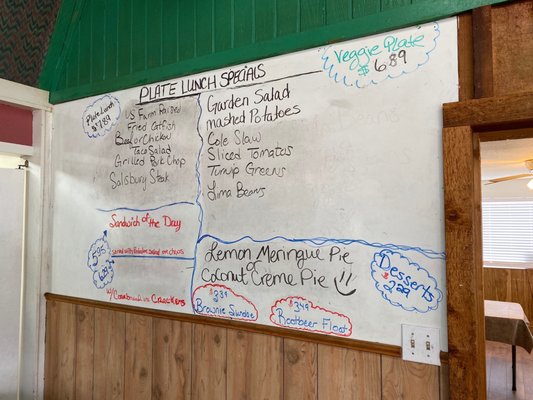 PLATE LUNCH SPECIALS
Veggie Plate
$6.89
Plate Lunch
$7.89
US Farm Raised
Fried Catfish
Beef or Chicken
Taco Salad
Grilled Pork Chop
Salsbury Steak
Garden Salad
mashed Potatoes
Cole Slaw
Sliced Tomatos
Turnip Greens
Lima Beans
Sandwich of the Day
Salad with
or chips
5.95
6.29
w/ Crackers
Lemon Meringue Pie
or
Coconut Creme Pie
Desserts
$2.29
Brownie Sundae
$3.49
Rootbeer Float